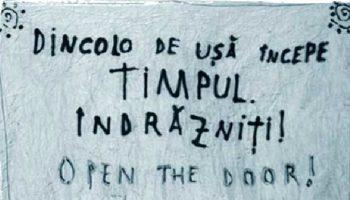 DINCOLO DE UȘĂ ÎNCEPE
TIMPUL.
ÎNDRĂZNIȚI!
OPEN THE DOOR!